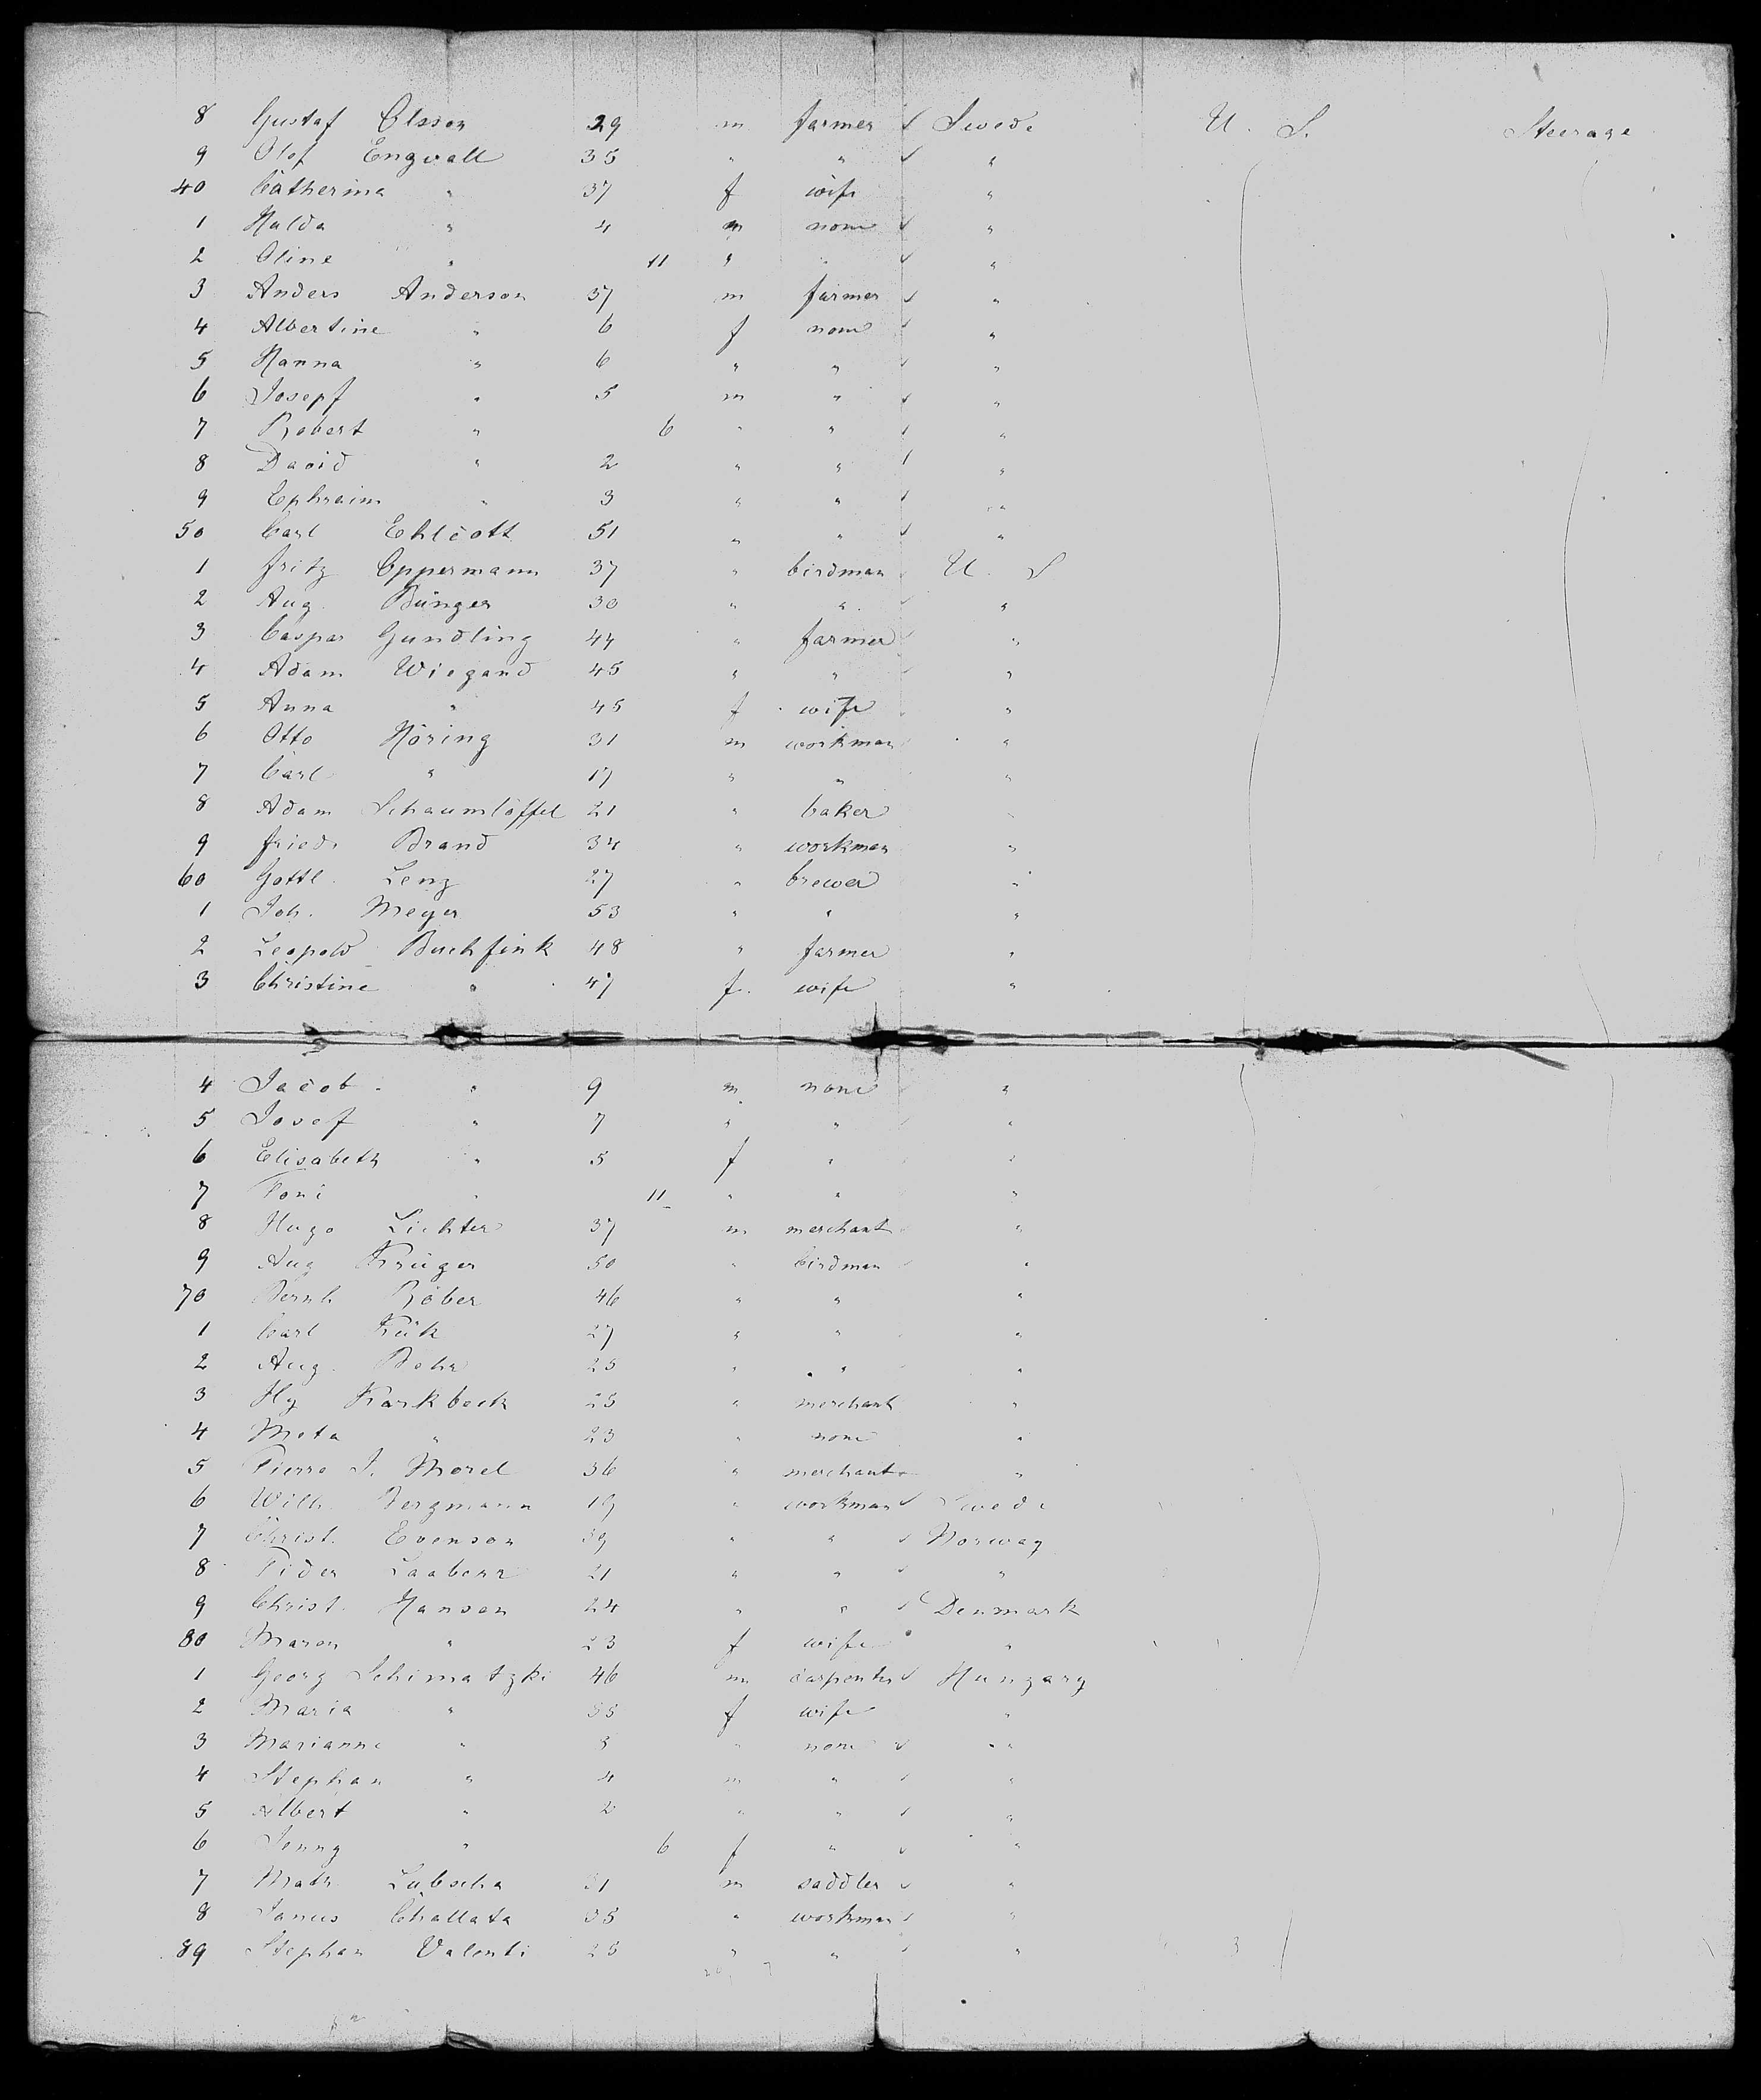 8 Gustaf Olsson 29 m farmer ✓ Swede U. S. Steerage
9 Olof Engvall 35 " " ✓ "
40 Catherina " 37 f wife "
1 Hulda " 4 m none ✓ "
2 Oline " 11 " " ✓ "
3 Anders Anderson 37 m farmer ✓ "
4 Albertine " 6 f none ✓ "
5 Hanna " 6 " " ✓ "
6 Josepf " 5 m " ✓ "
7 Robert " 6 " " ✓ "
8 David " 2 " " ✓ "
9 Ephraim " 3 " " ✓ "
50 Carl Ehlcott 51 " " ✓ "
1 Fritz Oppermann 37 " birdman ✓ U. S
2 Aug. Bünger 30 " " ✓ "
3 Caspar Gundling 44 " farmer ✓ "
4 Adam Wiegand 45 " " "
5 Anna " 45 f wife "
6 Otto Höring 31 m workman "
7 Carl " 17 " " "
8 Adam Schaumlöffel 21 " baker "
9 Friedr Brand 34 " workman "
60 Gottl. Lenz 27 " brewer "
1 Joh. Meyer 53 " " "
2 Leopold Buchfink 48 " farmer "
3 Christine " 47 f. wife "
4 Jacob " 9 m none "
5 Josef " 7 " " "
6 Elisabeth " 5 f " "
7 Toni " 11 " " "
8 Hugo Lichter 37 m merchant "
9 Aug Krüger 50 " birdman "
70 Bernh Röber 46 " " "
1 Carl Kük 27 " " "
2 Aug. Behr 25 " " "
3 Hy Karkbeck 25 " merchant "
4 Meta " 23 " none "
5 Pierre J. Morel 36 " merchant "
6 Wilh. Bergmann 19 " workman ✓ Swede
7 Christ. Evenson 39 " " ✓ Norway
8 Peder 21 " " ✓ "
9 Christ. Hansen 24 " " ✓ Denmark
80 Maren " 23 f wife "
1 Georg Schimatzki 46 m carpenter ✓ Hungary
2 Maria " f wife "
3 Marianne " " none ✓ "
4 Stephan " 4 m " ✓ "
5 Albert " 2 " " ✓ "
6 Jenny " 6 f " ✓ "
7 Math. Lubscha m saddler ✓ "
8 Janus Challata 35 " workman ✓ "
89 Stephan Valenti 25 " " ✓ "